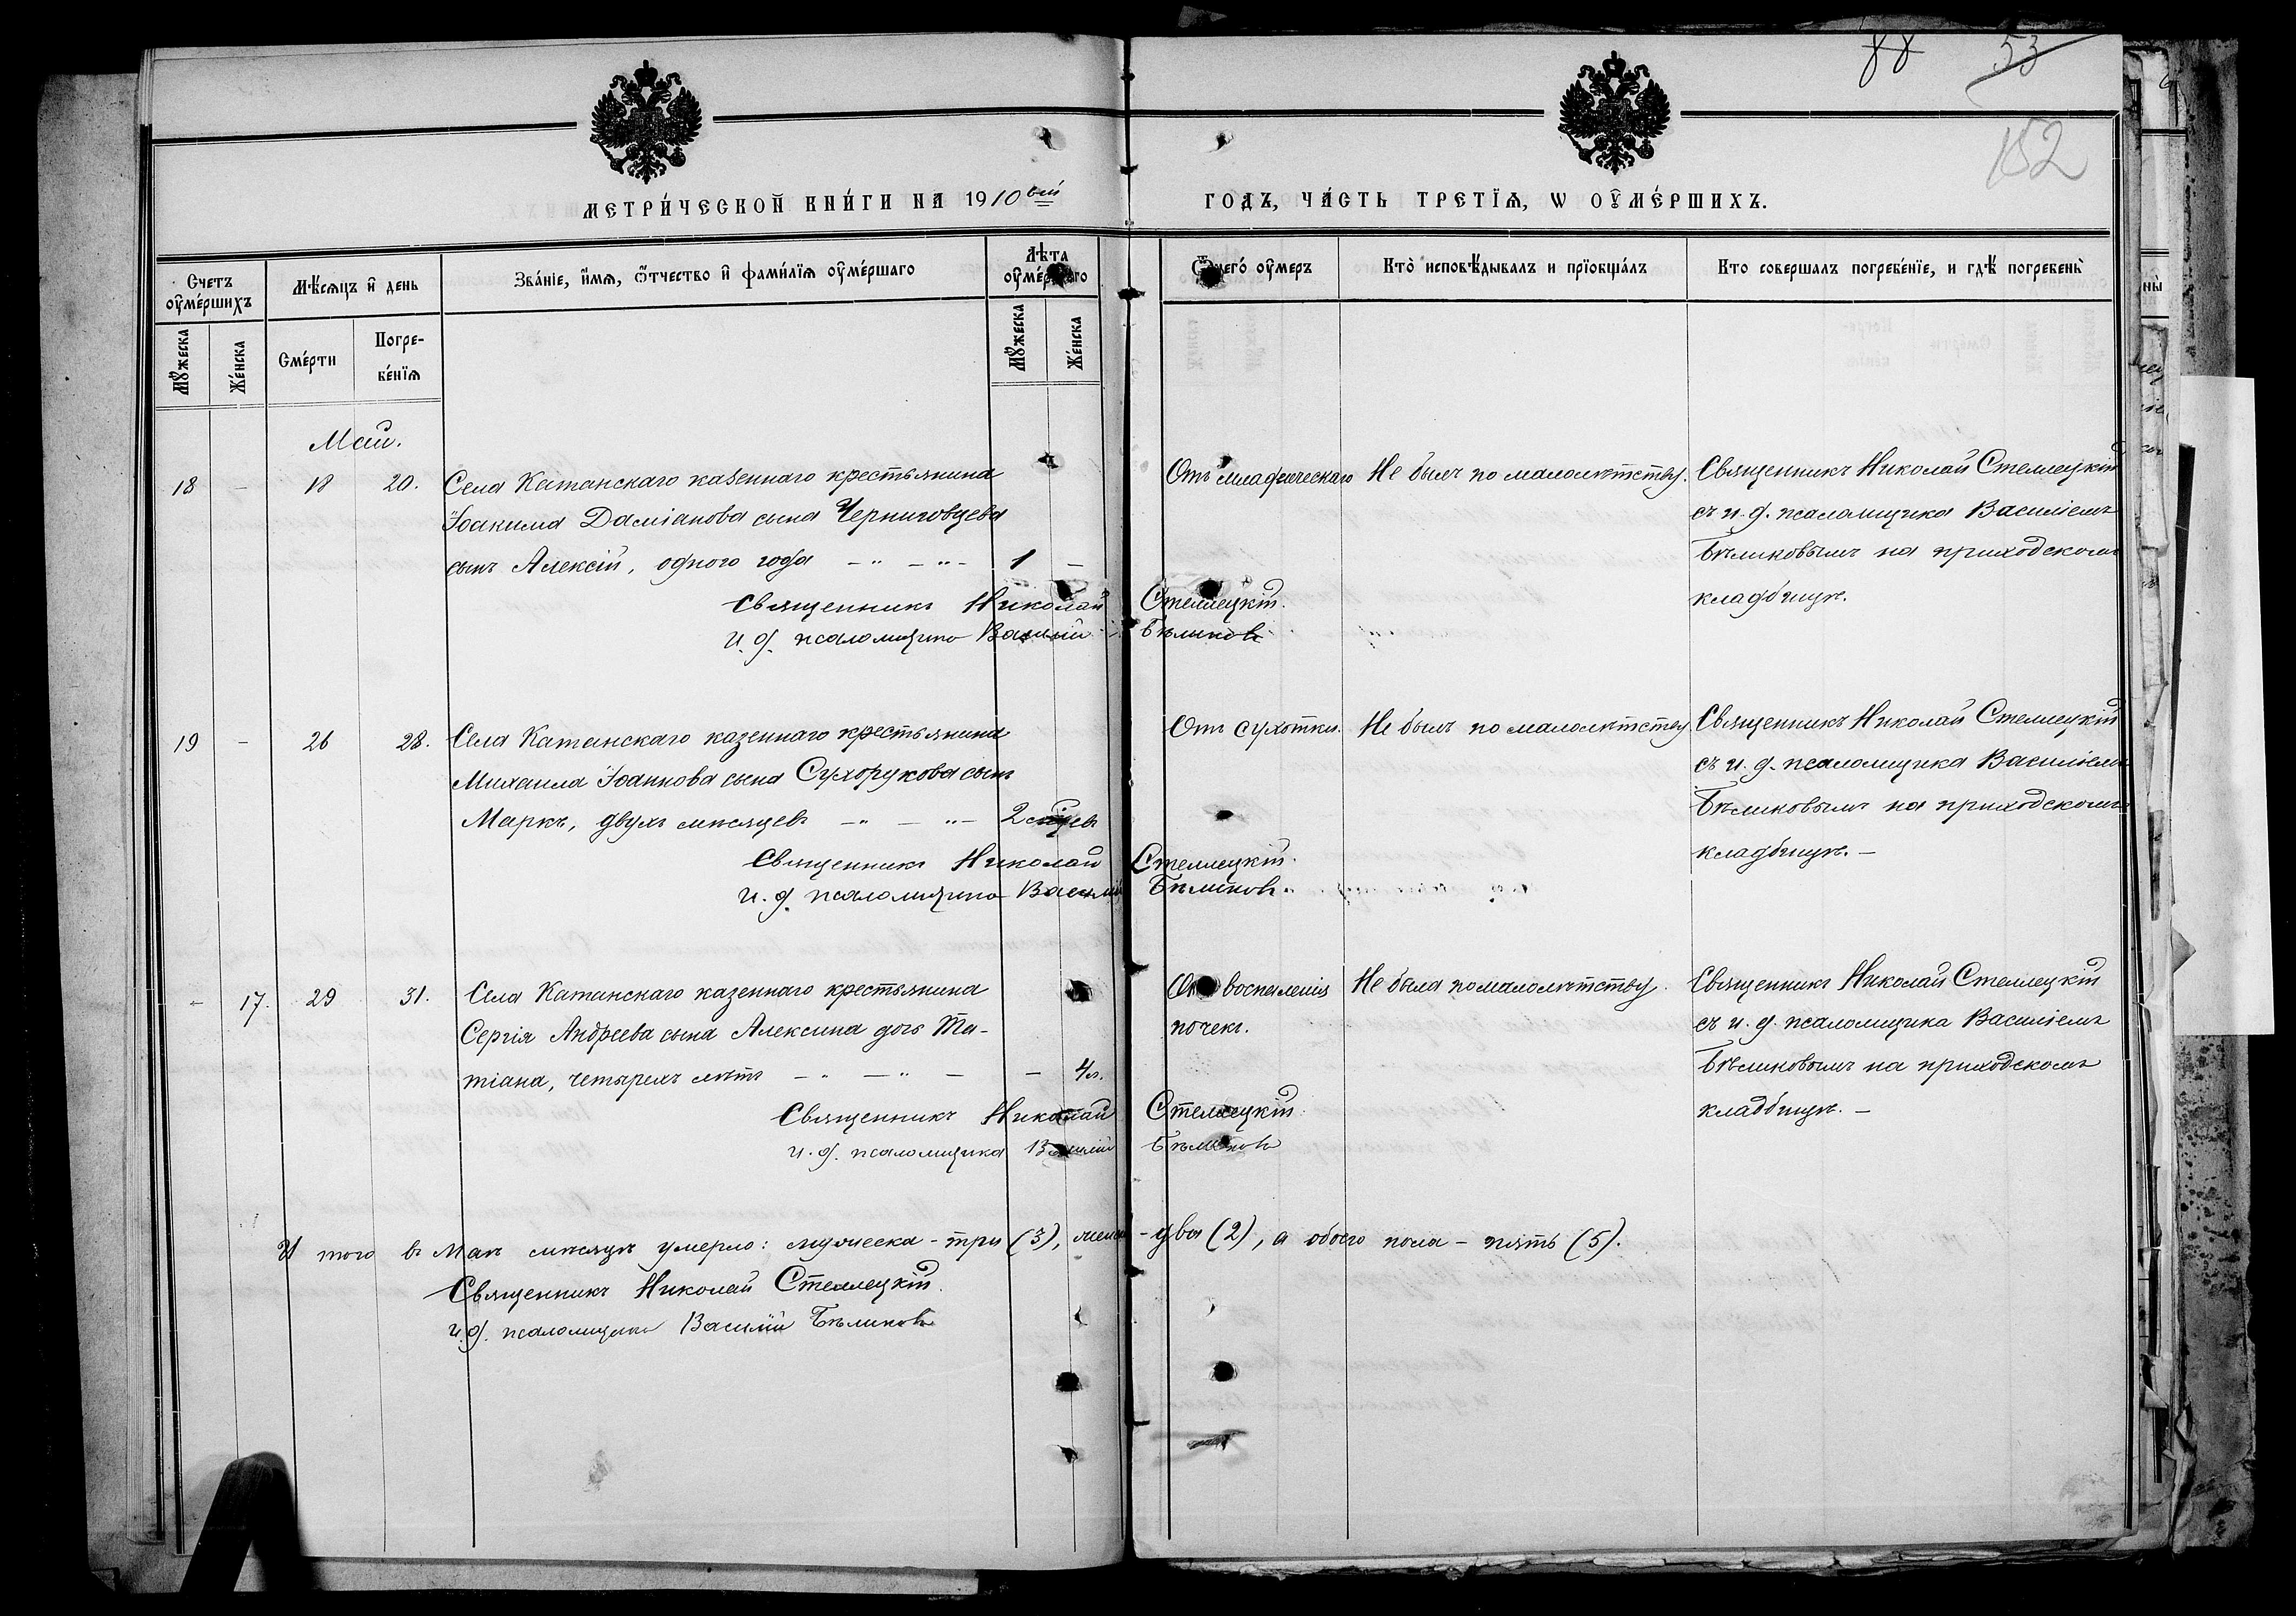 88 53
152
МЕТРИ́ЧЕСКОЙ КНИ́ГИ НА 1910 ый
ГОДЪ, ЧА́СТЬ ТРЕТІѦ, Ѡ ОУМЕ́РШИХЪ.
Счетъ оумершихъ
Мѣсяцъ и день
Зва́ніе, и́мя, ѻтчество и фами́лїѧ оуме́ршаго
Лѣта оумершаго
Ѿчего́ оумеръ
Кто̀ исповѣдывалъ и прїобща́лъ
Кто совершалъ погребе́нїе, и гдѣ погребенъ
Мужеска
Женска
Сме́рти
Погребе́нїѧ
Мужеска
Женска
Май.
18 - 18 20. Села Катанскаго казеннаго крестьянина
Іоакима Даміанова сына Черниговцева
сынъ Алексій, одного года - " - " - 1 -
От младенческаго
Не былъ по малолѣтству.
Священникъ Николай Стеллецкій
съ и. д. псаломщика Василіемъ
Бѣликовымъ на приходскомъ
кладбищѣ.
Священникъ Николай Стеллецкій.
и. д. псаломщика Василій Бѣликовъ
19 - 26 28. Села Катанскаго казеннаго крестьянина
Михаила Іоаннова сына Сухорукова сынъ
Маркъ, двухъ мѣсяцевъ - " - " - 2
Отъ сухотки.
Не былъ по малолѣтству
Священникъ Николай Стеллецкій
съ и. д. псаломщика Василіемъ
Бѣликовымъ на приходскомъ
кладбищѣ. -
Священникъ Николай Стеллецкій.
и. д. псаломщика Василій Бѣликовъ.
- 17. 29 31. Села Катанскаго казеннаго крестьянина
Сергія Андреева сына Алексина дочь Та-
тіана, четырехъ лѣтъ - " - " - - 4 л.
Отъ воспаленія
почекъ.
Не была по малолѣтству.
Священникъ Николай Стеллецкій
съ и. д. псаломщика Василіемъ
Бѣликовымъ на приходскомъ
кладбищѣ. -
Священникъ Николай Стеллецкій.
и. д. псаломщика Василій Бѣликовъ
И того въ Маѣ мѣсяцѣ умерло: мужеска - три (3), женска - два (2), а обоего пола - пять (5).
Священникъ Николай Стеллецкій.
и. д. псаломщика Василій Бѣликовъ